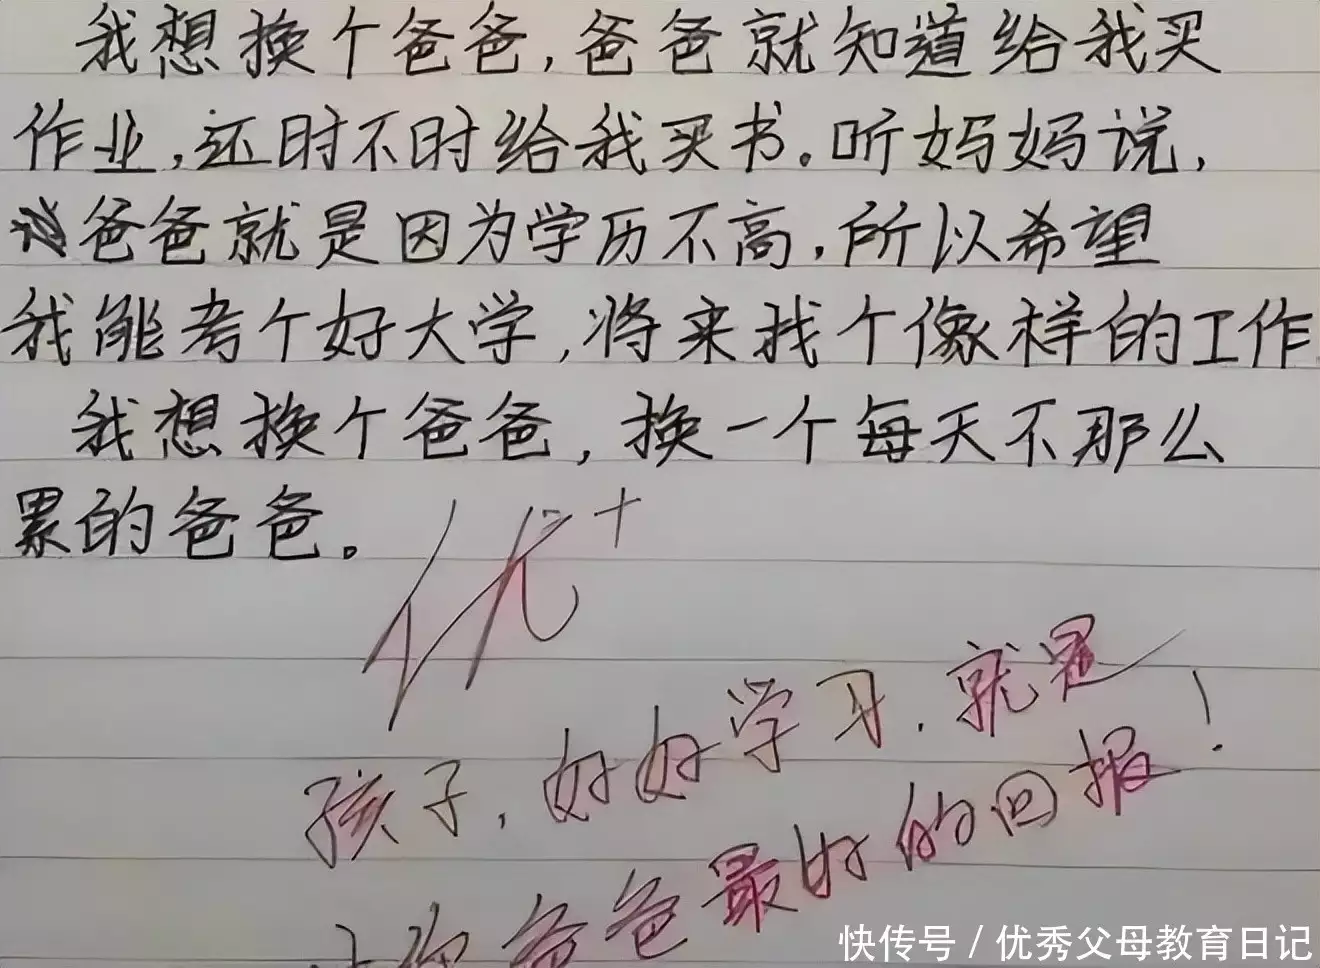 我想换个爸爸,爸爸就知道给我买
作业,还时不时给我买书。听妈妈说,
爸爸就是因为学历不高,所以希望
我能考个好大学,将来找个像样的工作
我想换个爸爸,换一个每天不那么
累的爸爸。
优+
孩子,好好学习,就是
对你爸爸最好的回报!
快传号/优秀父母教育日记